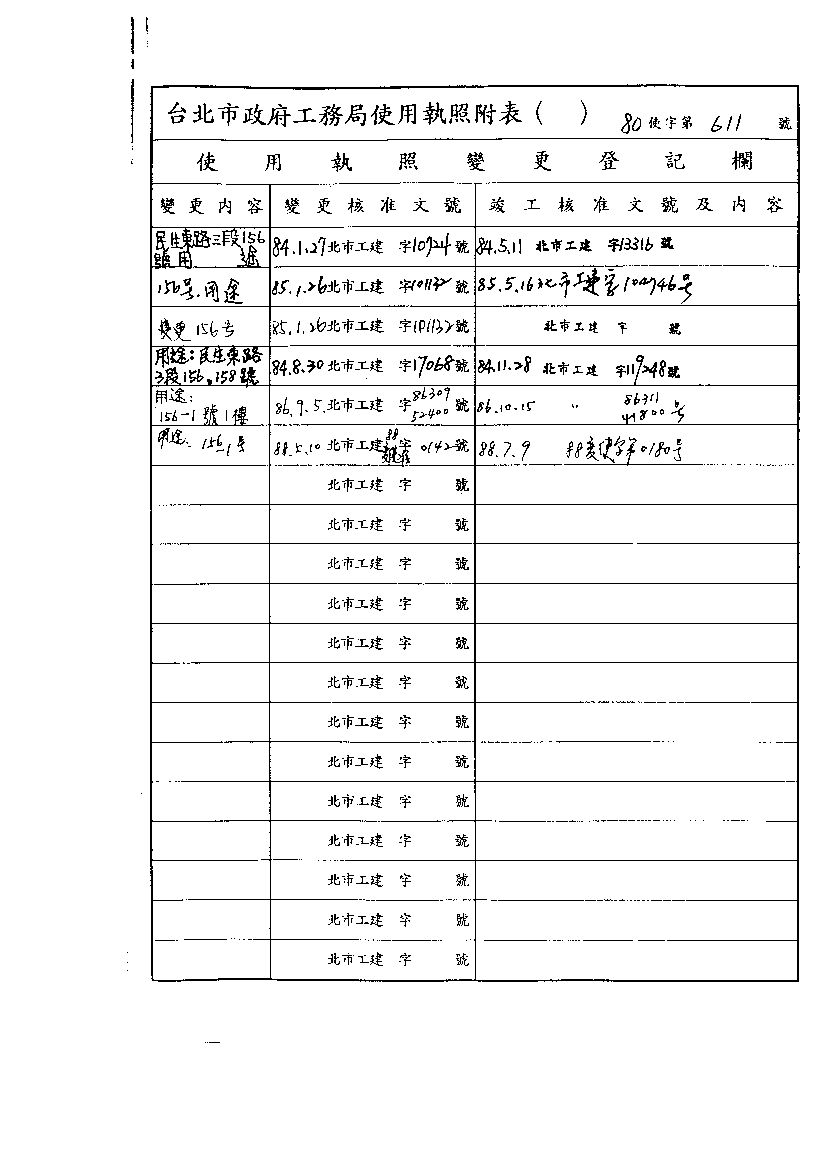 台北市政府工務局使用執照附表（　） 80使字第 611 號
使用執照變更登記欄
變更內容 變更核准文號 竣工核准文號及內容
民生東路三段156 84.1.27北市工建 字10724號 84.5.11 北市工建 字13316號
號用途
156号.用途 85.1.26北市工建 字101132號 85.5.16北市工建字102746号
變更156号 85.1.26北市工建 字101132號 北市工建 字 號
用途:民生東路 84.8.30北市工建 字17068號 84.11.28 北市工建 字119248號
3段156,158號
用途: 86.9.5.北市工建 字86309 號 86.10.15 〃 86311 号
156-1號1樓 52400 41800
用途: 156-1号 88.5.10北市工建 88 字0142號 88.7.9 88變使字第0180号
北市工建 字 號
北市工建 字 號
北市工建 字 號
北市工建 字 號
北市工建 字 號
北市工建 字 號
北市工建 字 號
北市工建 字 號
北市工建 字 號
北市工建 字 號
北市工建 字 號
北市工建 字 號
北市工建 字 號